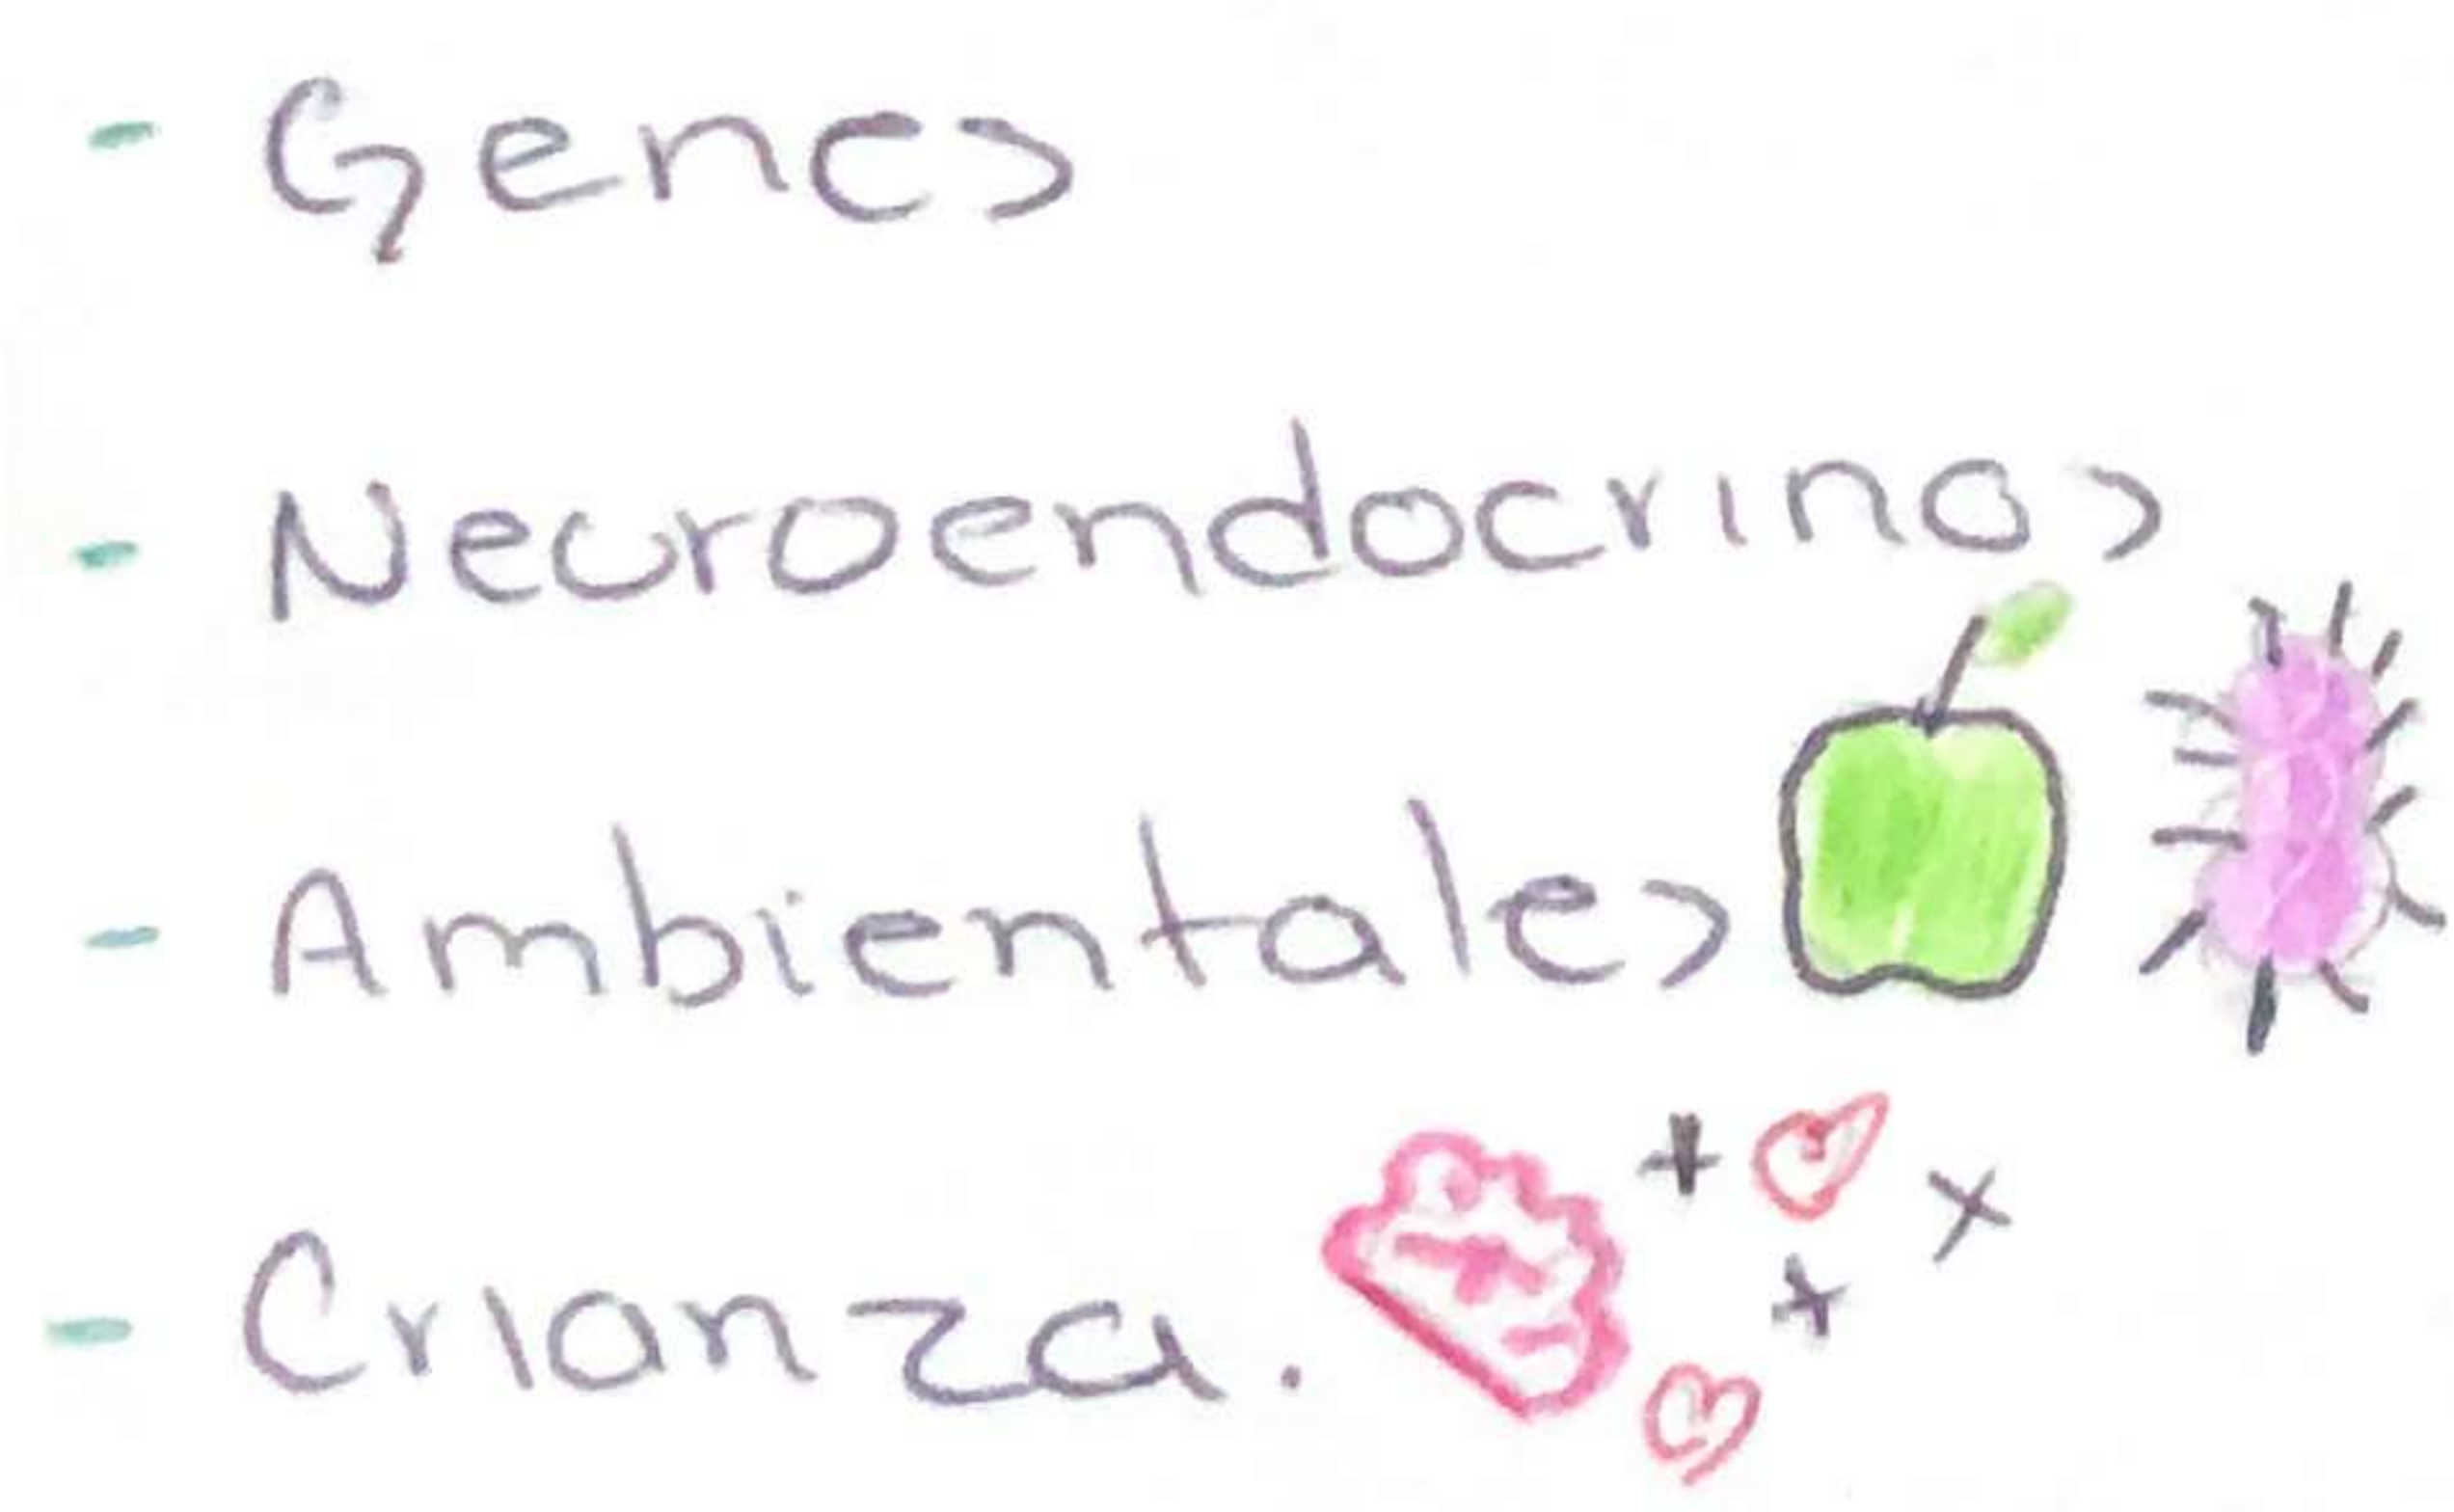 - Genes
- Neuroendocrinos
- Ambientales
- Crianza.